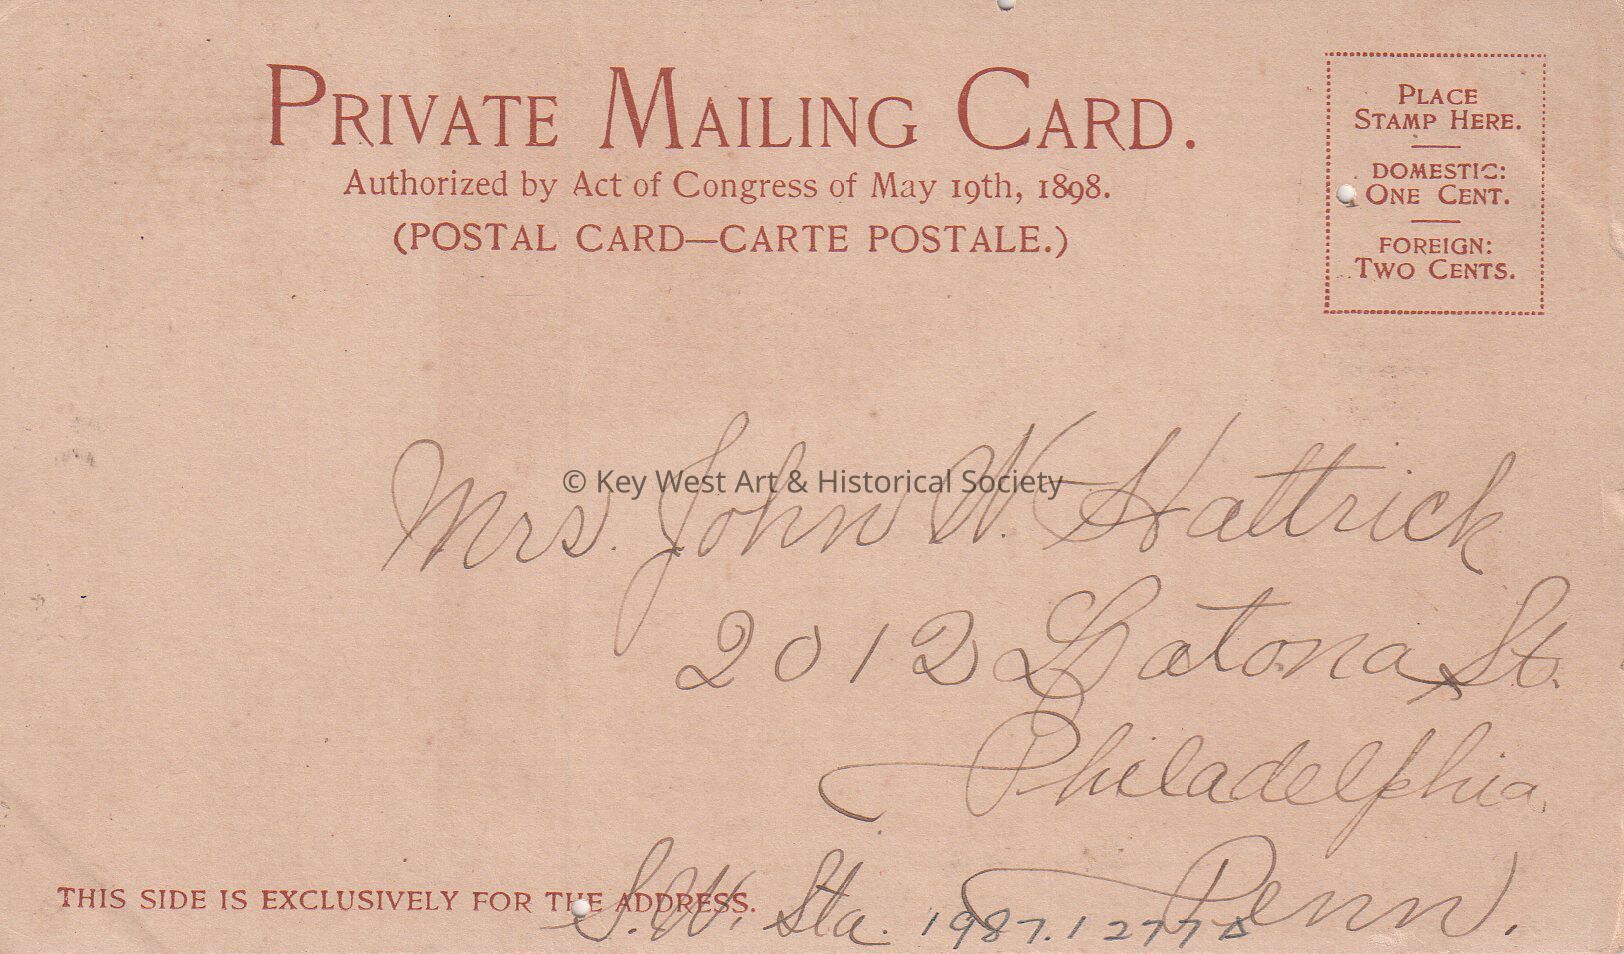 PRIVATE MAILING CARD.
Authorized by Act of Congress of May 19th, 1898.
(POSTAL CARD—CARTE POSTALE.)
PLACE
STAMP HERE.
DOMESTIC:
ONE CENT.
FOREIGN:
TWO CENTS.
© Key West Art & Historical Society
Mrs. John W. Hattrick
2012 Latona St.
Philadelphia,
Penn.
S.W. Sta.
THIS SIDE IS EXCLUSIVELY FOR THE ADDRESS.
1987.1277